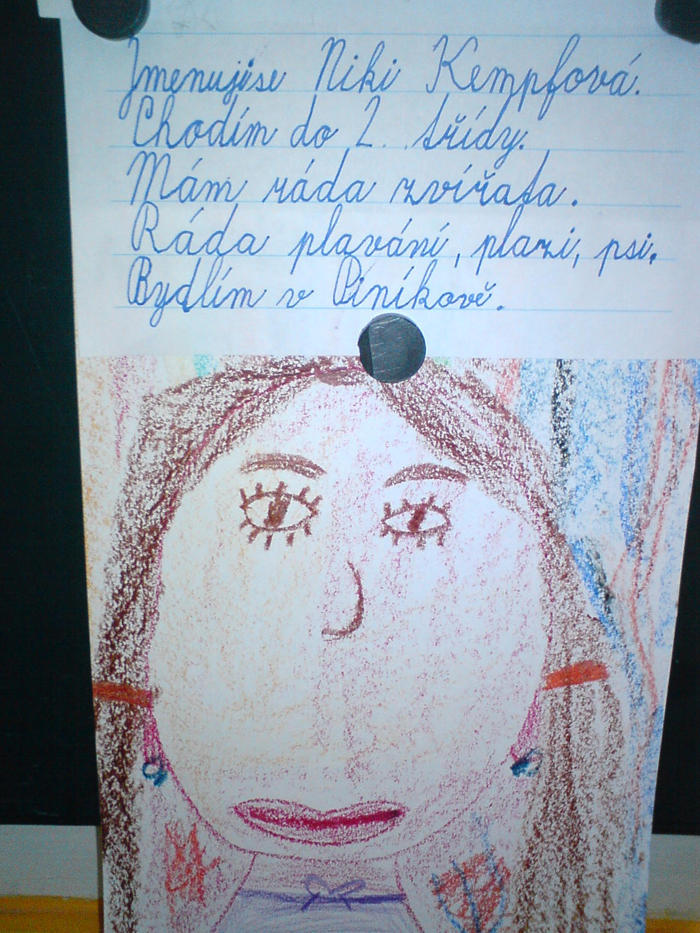 Jmenujise Niki Kempfová.
Chodím do 2. třídy.
Mám ráda zvířata.
Ráda plavání, plazi, psi.
Bydlím v Piníkově.